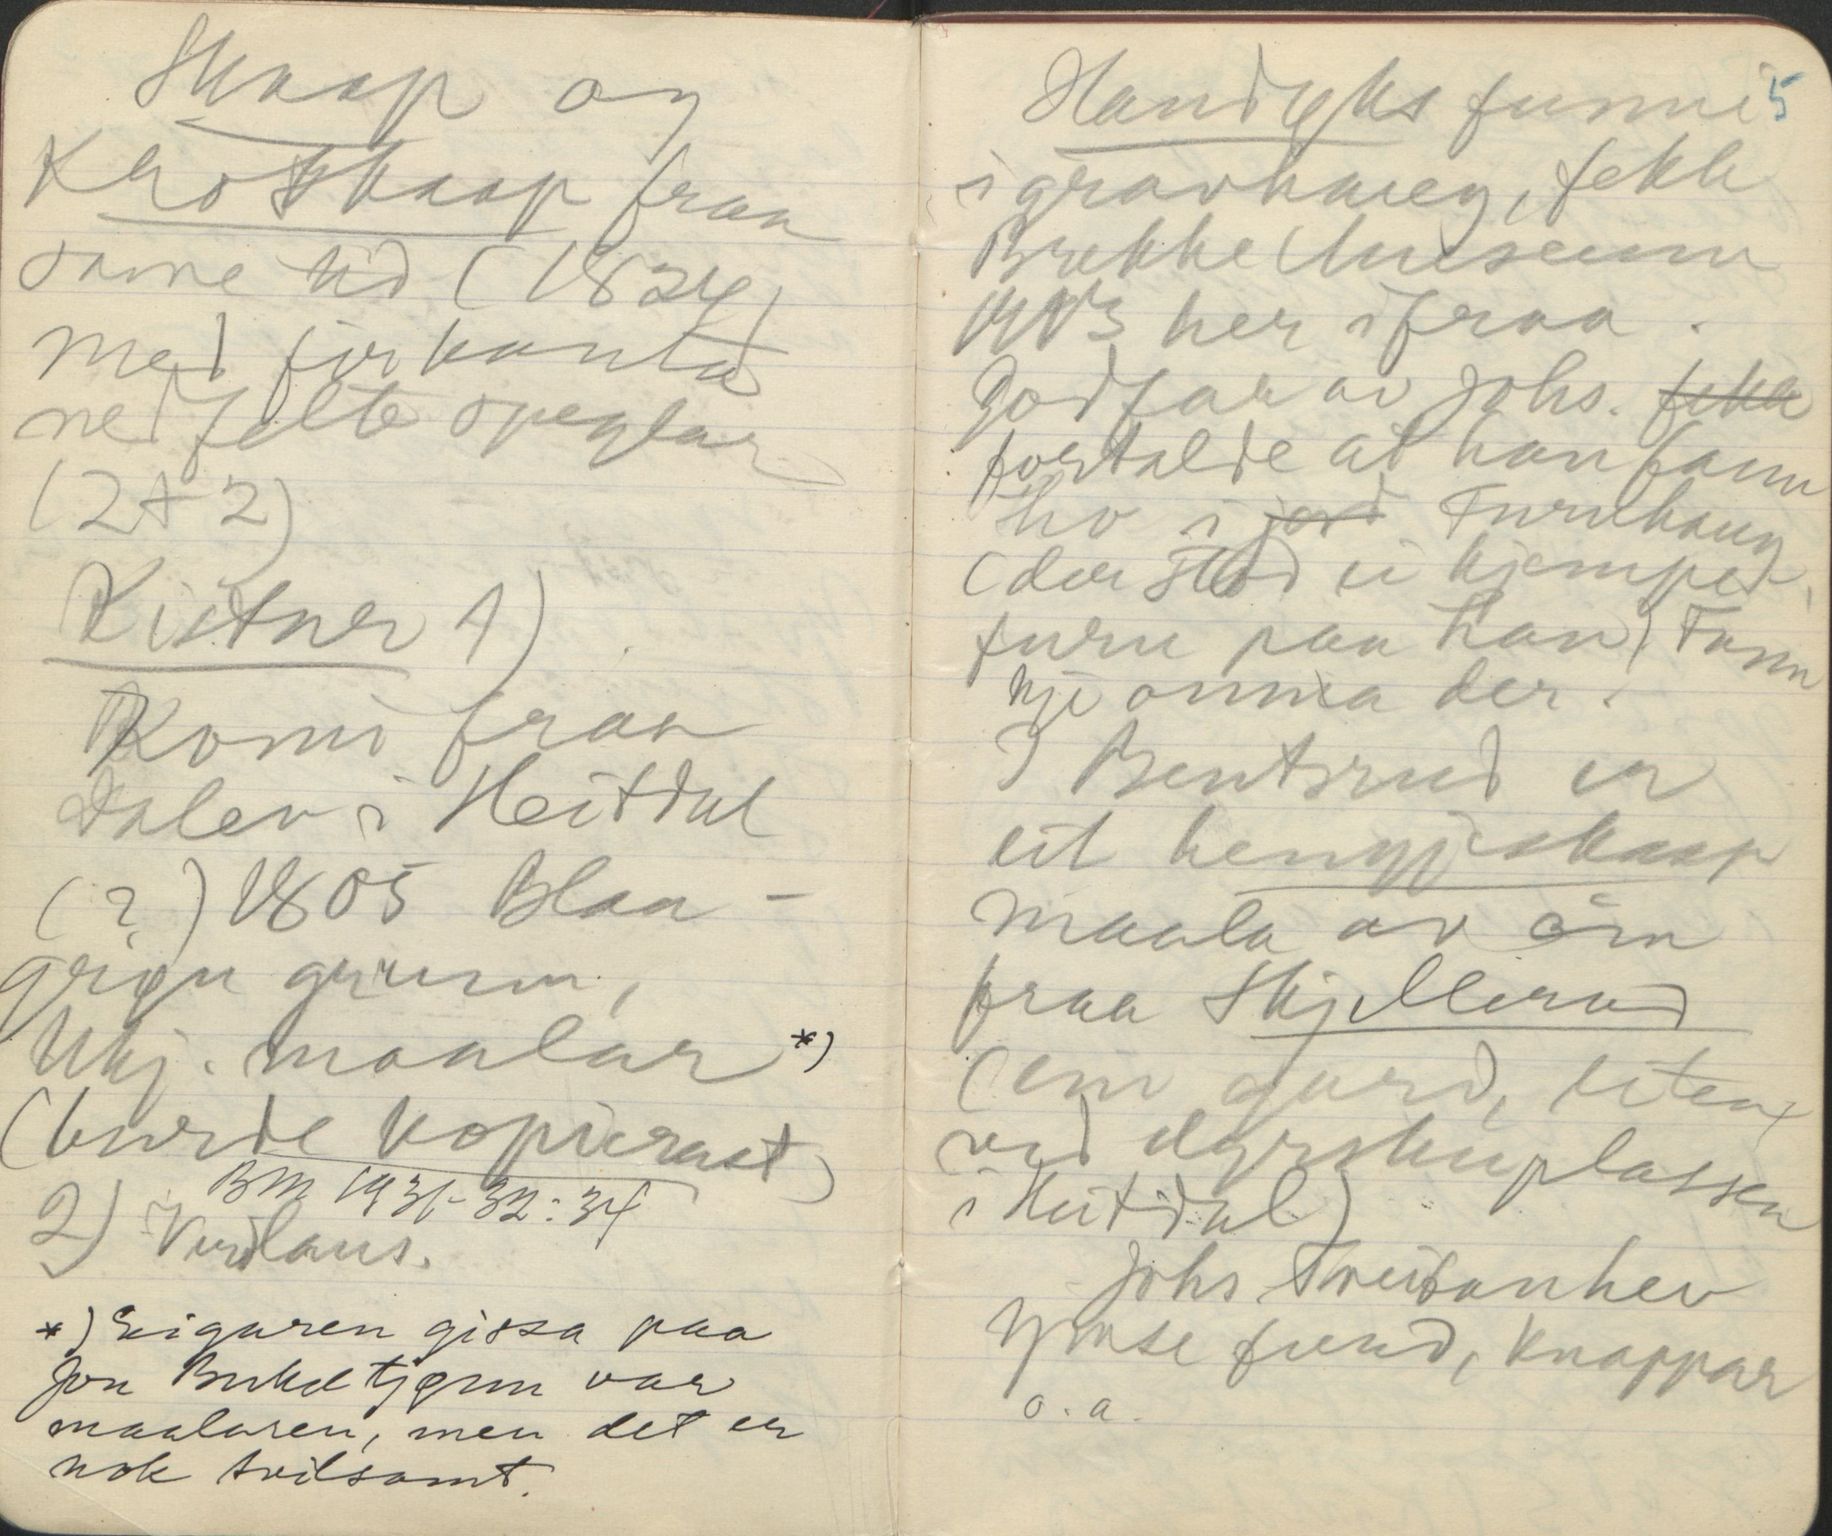 Skaap og
Kroskaap fraa
same tid (1824)
med firkanta
nedfelte speglar
(2+2)
Kistner 1)
Komi fraa
Dalen i Heitdal
(?) 1805 Blaa-
grøn grunn,
Ukj. maalar *)
(burde kopierast)
BM 1931-32:34
2) Verdlaus.
*) Eigaren gissa paa
Jon Buketjønn var
maalaren, men det er
nok tvilsamt.
5
Handyks funni
i gravhaug, fekk
Brekke Museum
1913 her ifraa.
Godfar av Johs. fekk
fortalde at han fann
ho i jord Furuhaug
(der stod ei kjempe-
furu paa han) Fann
kje anna der.
I Bentsrud er
eit hengjeskaap
maala av ein
fraa Skjellerud
(ein gard, liten
ved dyrskuplassen
i Heitdal)
Johs hev
ymse fund, knappar
o.a.